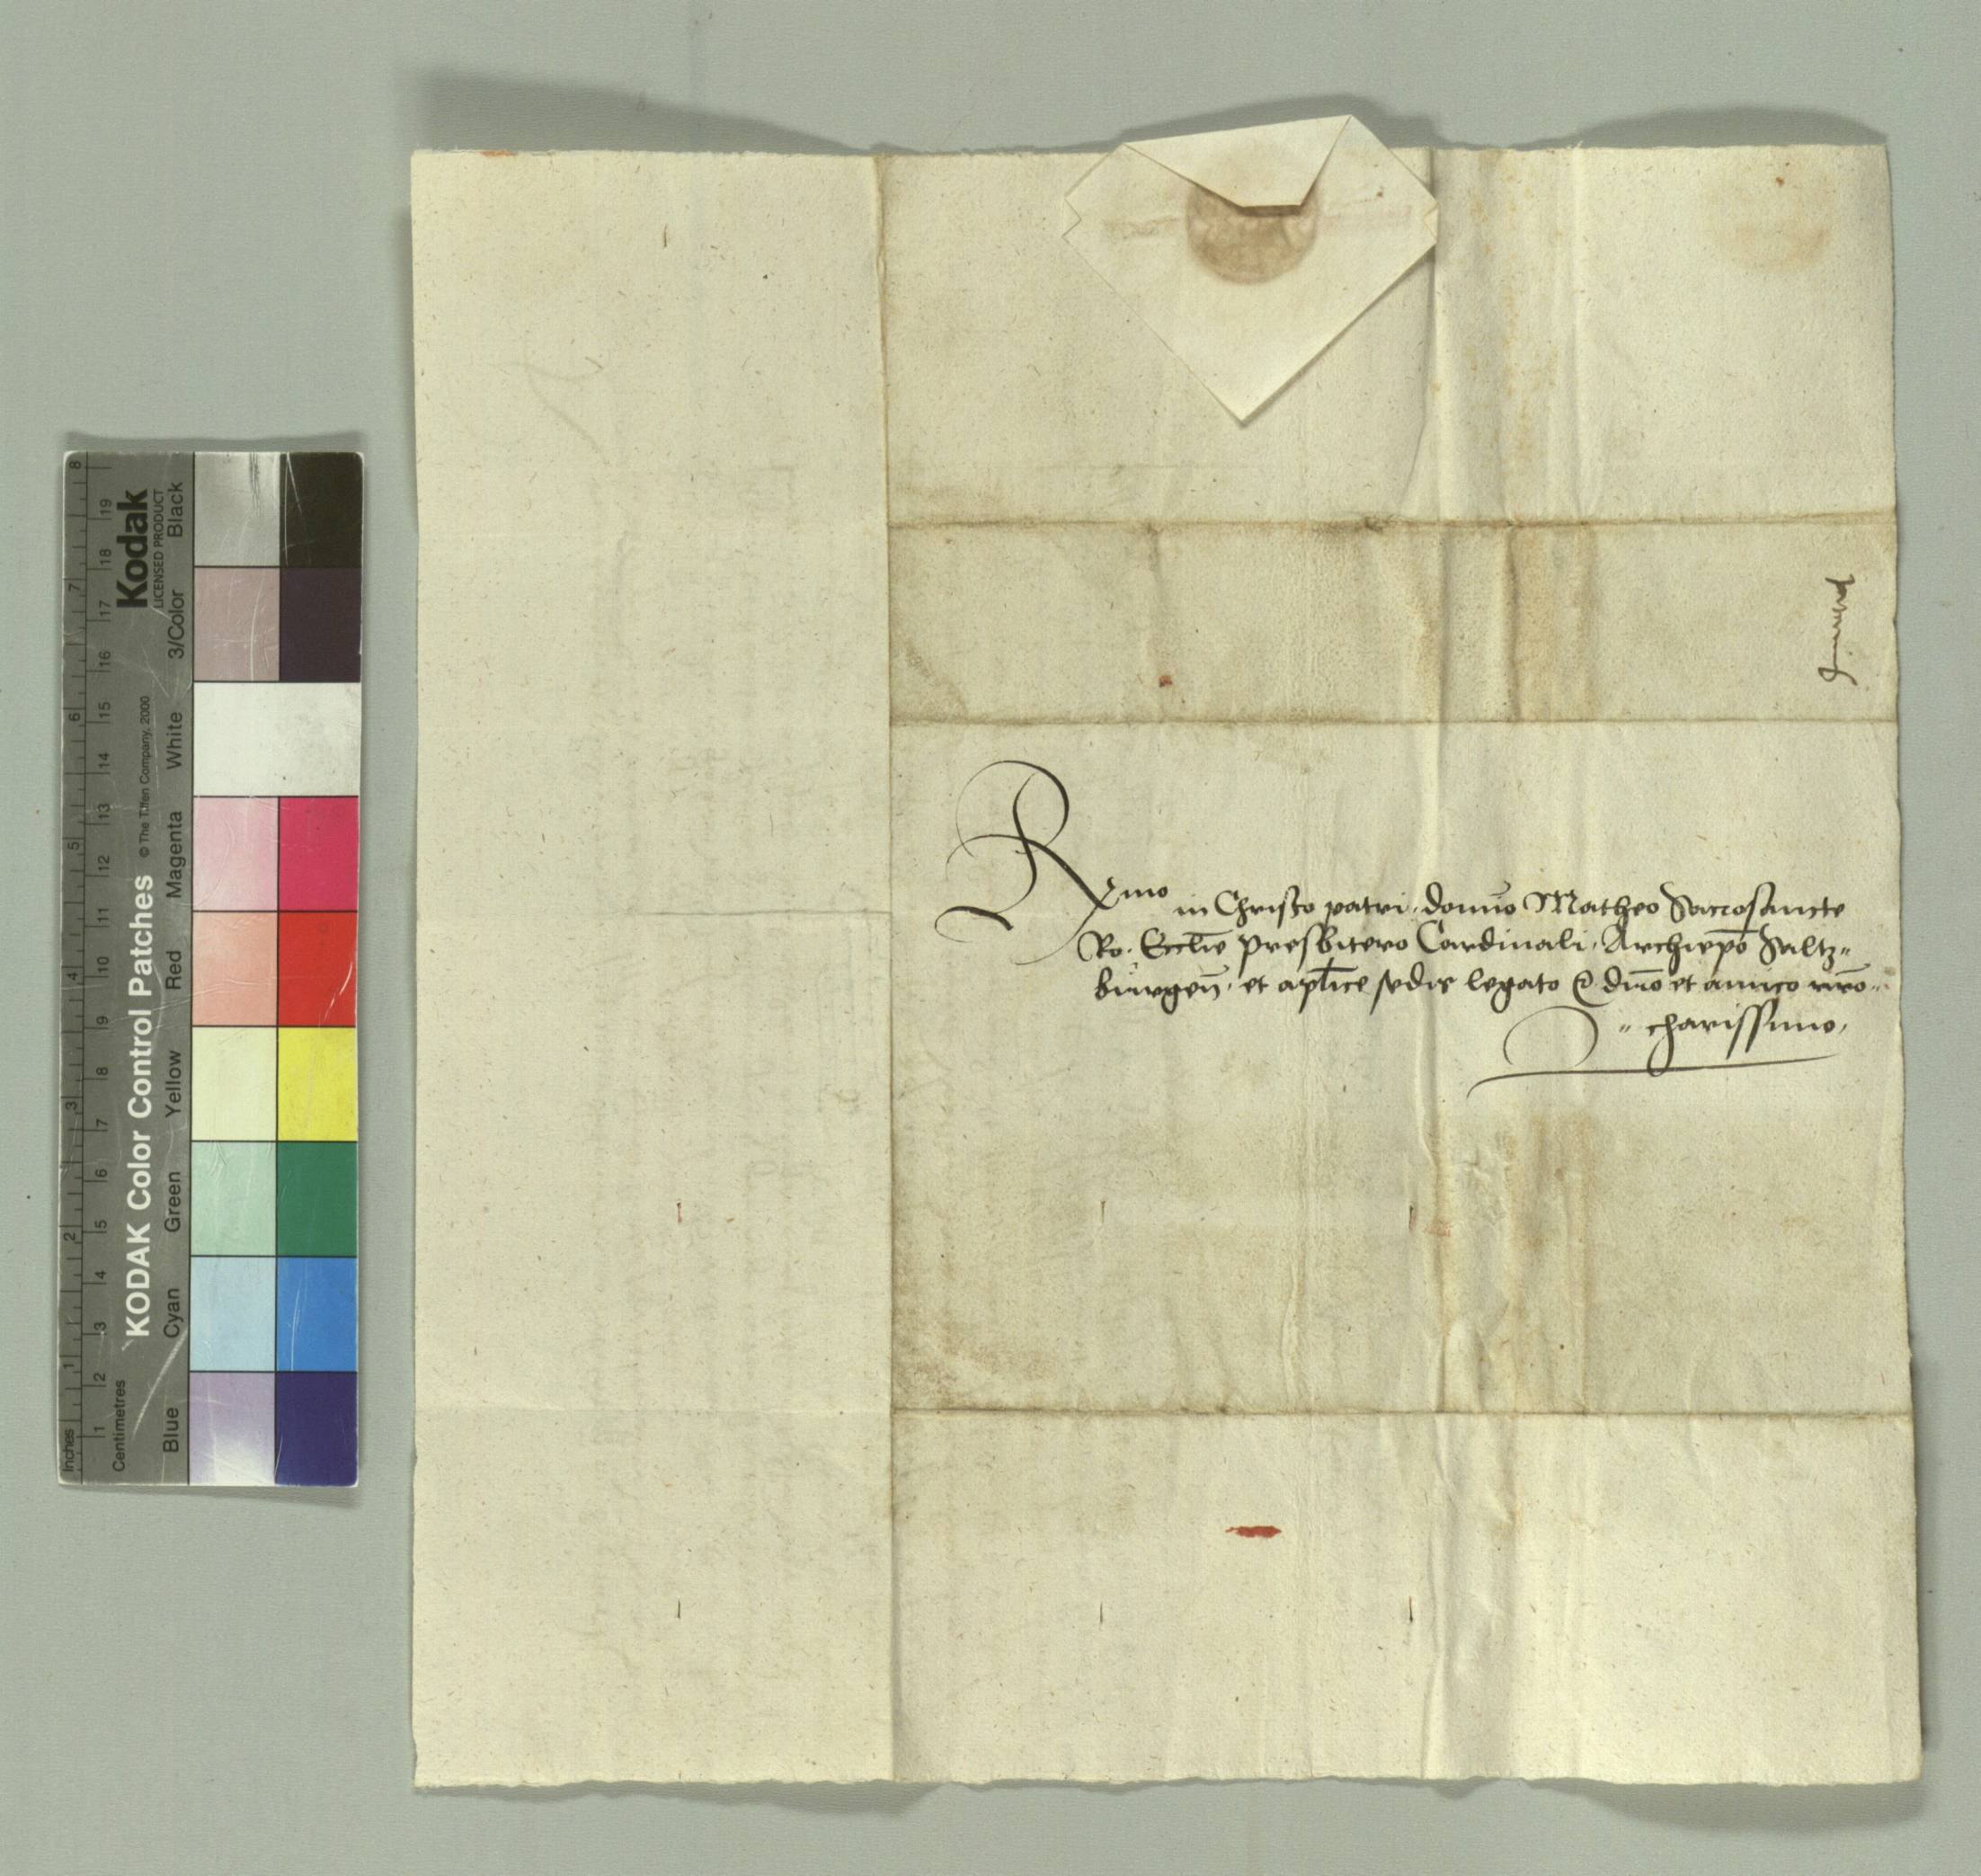 Kodak
LICENSED PRODUCT
KODAK Color Control Patches
© The Tiffen Company, 2000
Inches
Centimetres
1 2 3 4 5 6 7 8
1 2 3 4 5 6 7 8 9 10 11 12 13 14 15 16 17 18 19
Blue
Cyan
Green
Yellow
Red
Magenta
White
3/Color
Black
Rmo in Christo patri, domio Matheo Sacrosancte
Ro. Ecclie presbitero Cardinali, Archiepo Saltz„
burgen, et aplice sedis legato &. dno et amico nro„
„ charissimo,